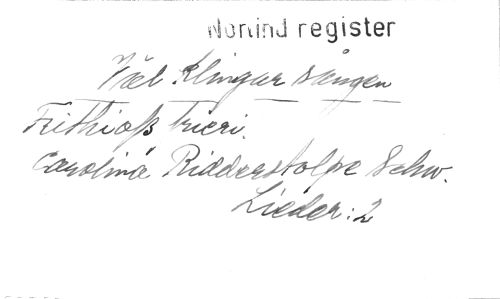 Nomind register
Väl Klingar sången
Frithiofs frieri.
Carolina Ridderstolpe Schw.
Lieder: 2